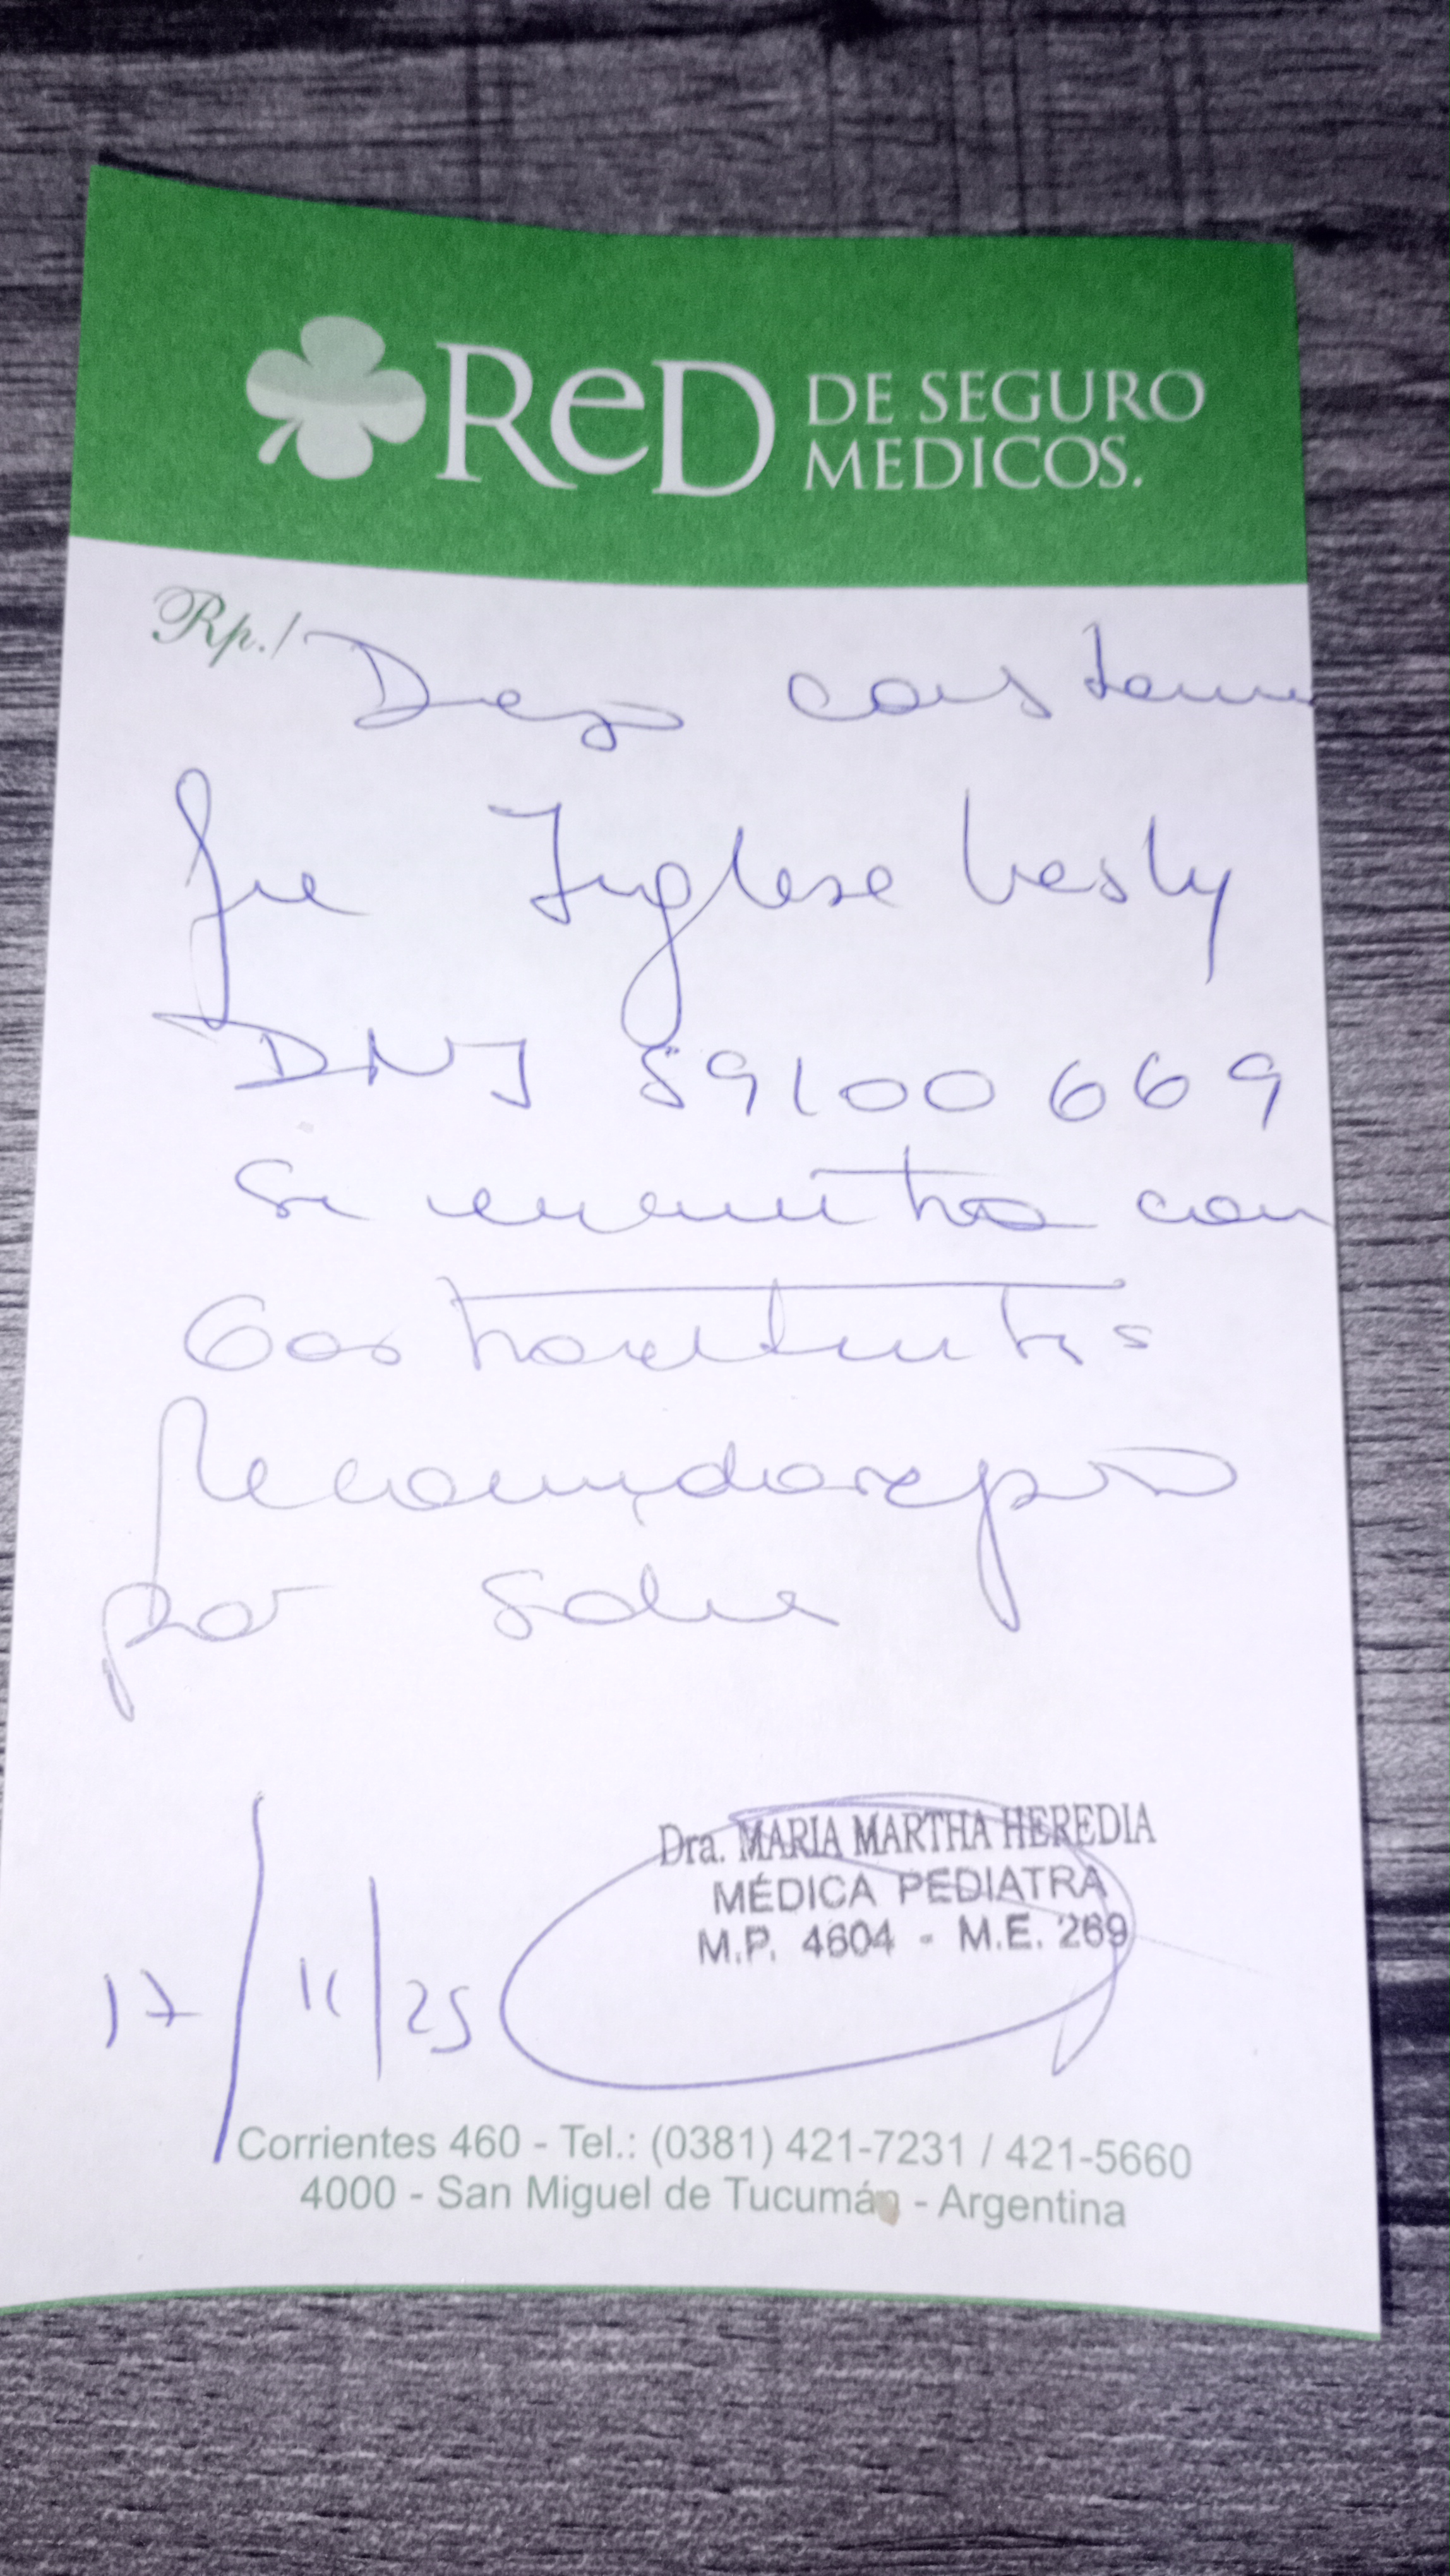 ReD DE SEGURO
MEDICOS.
Rp./ Dejo constancia
que Inglese
DNI 59100669
se encuentra con
Gastroenteritis
Recomiendo reposo
por
17/11/25
Dra. MARIA MARTHA HEREDIA
MÉDICA PEDIATRA
M.P. 4604 - M.E. 269
Corrientes 460 - Tel.: (0381) 421-7231 / 421-5660
4000 - San Miguel de Tucumán - Argentina